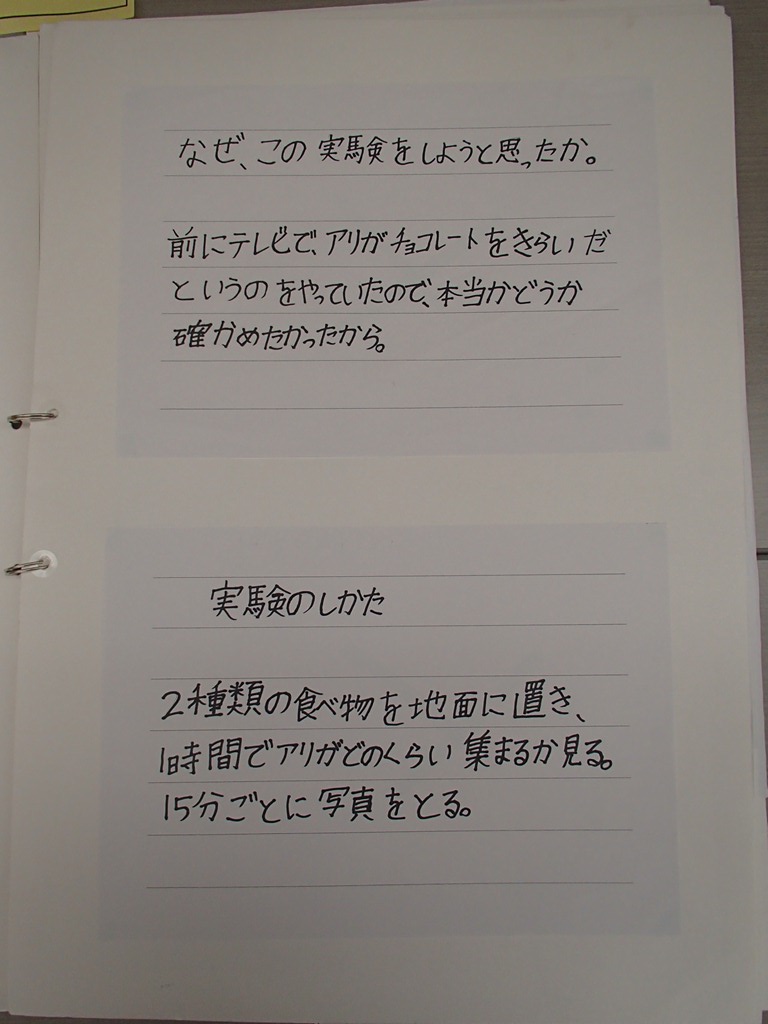 なぜ、この実験をしようと思ったか。
前にテレビで、アリがチョコレートをきらいだ
というのをやっていたので、本当かどうか
確かめたかったから。
実験のしかた
2種類の食べ物を地面に置き、
1時間でアリがどのくらい集まるか見る。
15分ごとに写真をとる。